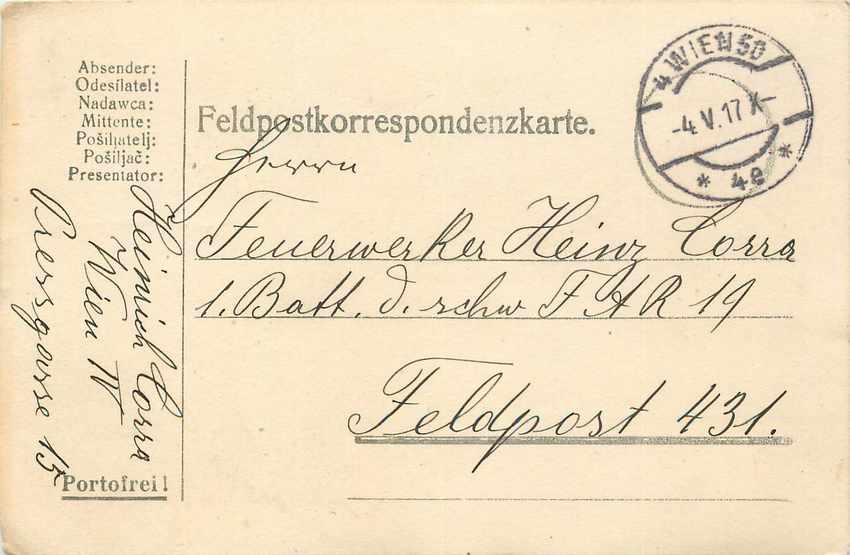 Absender:
Odesílatel:
Nadawca:
Mittente:
Pošiljatelj:
Pošiljač:
Presentator:
Heinrich Corra
Wien IV
Pressgasse 15
Portofrei!
Feldpostkorrespondenzkarte.
Herrn
Feuerwerker Heinz Corra
1. Batt. d. schw F A R 19
Feldpost 431.
4 WIEN 50
-4.V.17 X-
* 4e *